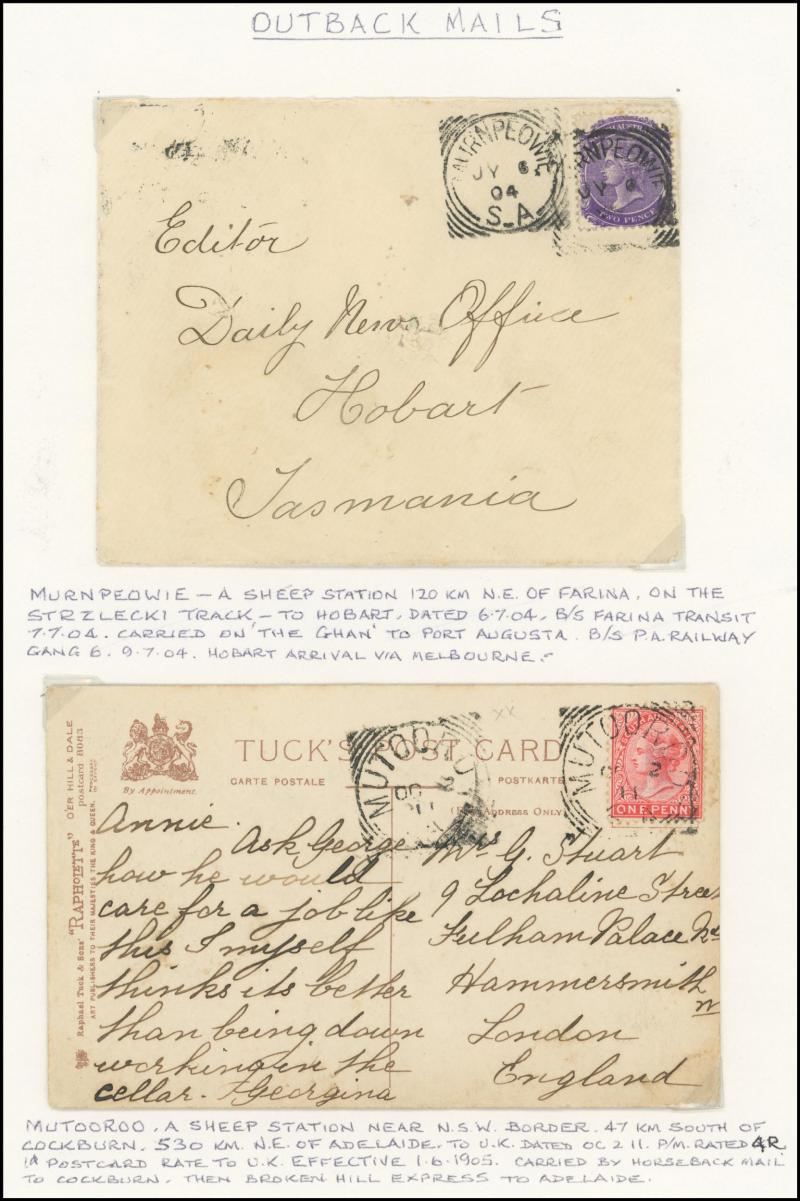 OUTBACK MAILS
MURNPEOWIE
JY 6
04
S_A
RNPEOWIE
JY 6
TWO PENCE
Editor
Daily News Office
Hobart
Tasmania
MURNPEOWIE – A SHEEP STATION 120 KM N.E. OF FARINA, ON THE
STRZLECKI TRACK, – TO HOBART, DATED 6.7.04, B/S FARINA TRANSIT
7.7.04. CARRIED ON 'THE GHAN' TO PORT AUGUSTA. B/S P.A. RAILWAY
GANG 6. 9.7.04. HOBART ARRIVAL VIA MELBOURNE.-
Raphael Tuck & Sons' "RAPHOIETTE" O'ER HILL & DALE
postcard 8083
ART PUBLISHERS TO THEIR MAJESTIES THE KING & QUEEN.
By Appointment.
TUCK'S POST CARD
CARTE POSTALE POSTKARTE
Address Only
XX
MUTOORO
OC 2
11
MUTOOR
2
11
ONE PENNY
Annie.
Ask George
how he would
care for a job like
this I myself
thinks its better
than being down
working in the
cellar. Georgina
Mrs G. Stuart
9 Lochaline Street
Fulham Palace Rd
Hammersmith
W
London
England
MUTOOROO, A SHEEP STATION NEAR N.S.W. BORDER. 47 KM SOUTH OF
COCKBURN. 530 KM. N.E. OF ADELAIDE. TO U.K. DATED OC 2 11. P/M. RATED 4R
1d POSTCARD RATE TO U.K. EFFECTIVE 1.6.1905. CARRIED BY HORSEBACK MAIL
TO COCKBURN, THEN BROKEN HILL EXPRESS TO ADELAIDE.